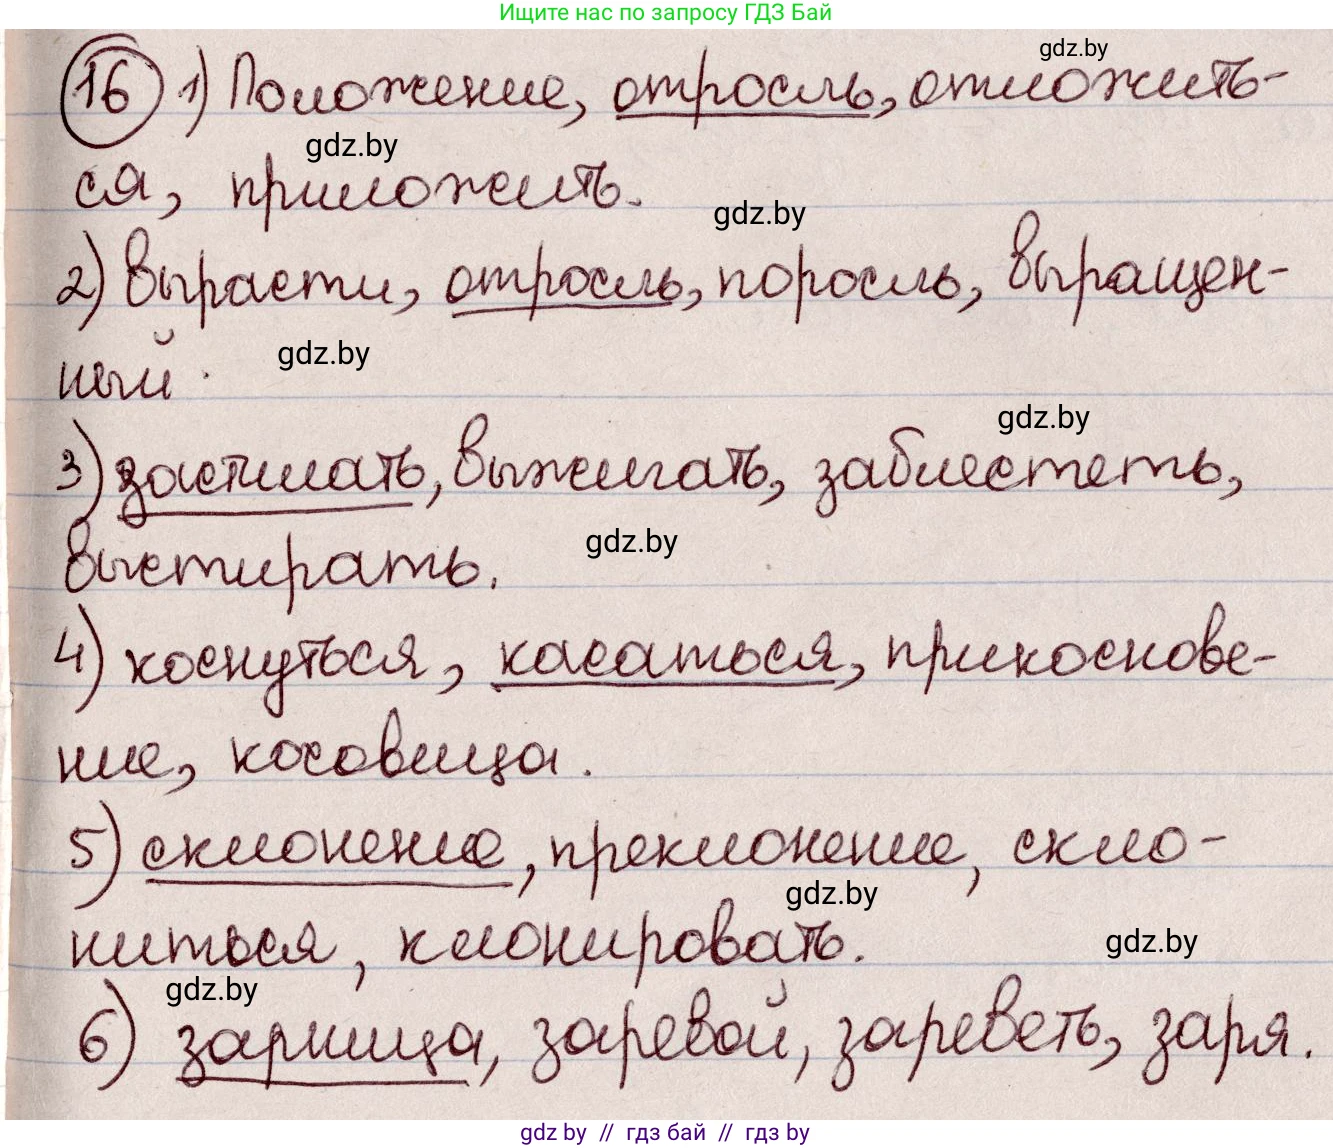 Ищите нас по запросу ГДЗ Бай
gdz.by
16 1) Положение, отросль, отложить-
gdz.by
ся, приложить.
gdz.by
2) вырасти, отросль, поросль, выращен-
gdz.by
ный.
gdz.by
3) застилать, выжигать, заблестеть,
gdz.by
выстирать.
4) коснуться, касаться, прикоснове-
ние, косовица.
5) склонение, преклонение, скло-
gdz.by
ниться, клонировать.
gdz.by
gdz.by
6) зарница, заревой, зареветь, заря.
gdz by // гдз бай // gdz by